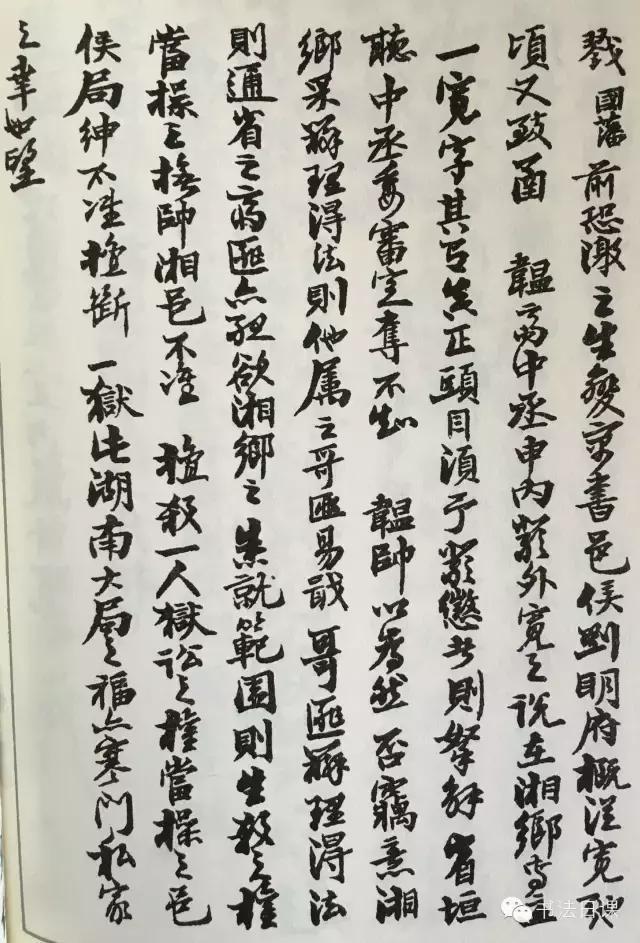 戮國藩前恐激之生變書邑侯劉明府概從寬大
頃又致函 韞齋中丞申內嚴外寬之說在湘鄉專立
一寬字其真正頭目須予嚴懲者則拏解省垣
聽中丞委審定奪不知 韞帥以為然否竊意湘
鄉果辦理得法則他屬之哥匪易戢哥匪辦理得法
則通省之齋匪亦孤欲湘鄉之案就範圍則生殺之權
當操之撫帥湘邑不准 擅殺一人獄訟之權當操之邑
侯局紳不准擅斷一獄此湖南大局之福亦寒門私家
之幸也望
书法日课